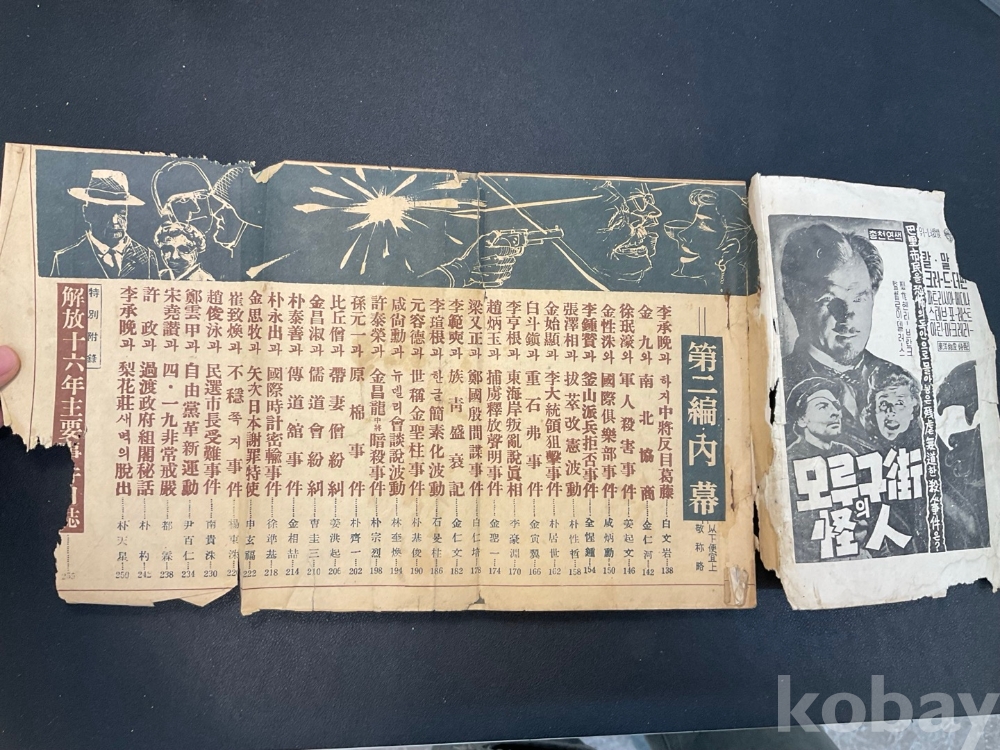 第二編內幕
以下便宜上
敬稱略
李承晩과 하지中將反目葛藤……白文岩……138
金九와 南北協商……金仁河……142
徐珉濠와 軍人殺害事件……姜起文……146
金性洙와 國際俱樂部事件……咸炳勳……150
李鍾贊과 釜山派兵拒否事件……全惺鍾……154
張澤相과 拔萃改憲波動……朴性哲……158
金始顯과 李大統領狙擊事件……朴居世……162
白斗鎭과 重石弗事件……金寅翼……166
李亨根과 東海岸叛亂說眞相……李豪淵……170
趙炳玉과 捕虜釋放聲明事件……金聰一……174
梁又正과 鄭國殷間諜事件……白仁培……178
李範奭과 族靑盛衰記……金仁文……182
李瑄根과 한글簡素化波動……石昊柱……186
元容德과 世稱金聖柱事件……朴基俊……190
咸尙勳과 뉴델리會談說波動……林奎煥……194
許泰榮과 金昌龍中將暗殺事件……朴宗烈……198
孫元一과 原棉事件……朴齊一……202
比丘僧과 帶妻僧紛糾……姜洪起……206
金昌淑과 儒道會紛糾……曹圭三……210
朴泰善과 傳道舘事件……金相喆……214
朴永出과 國際時計密輸事件……徐準基……218
金思牧과 矢次日本謝罪特使……申玄福……222
崔致煥과 不穩쪽지事件……226
趙俊泳과 民選市長受難事件……南貴洙……230
鄭雲甲과 自由黨革新運動……尹百仁……234
宋堯讚과 四·一九非常戒嚴……都……238
許政과 過渡政府組閣秘話……朴杓……242
李承晩과 梨花莊새벽의脫出……朴天泉……250
特別附錄
解放十六年主要事件日誌……255
총천연색
칼·말덴
파트리샤메디나
스티브·포레스트
巴里市民을恐怖의도가니속으로몰아넣은殘虐無道한殺人事件은?
모루구街의
怪人
kobay